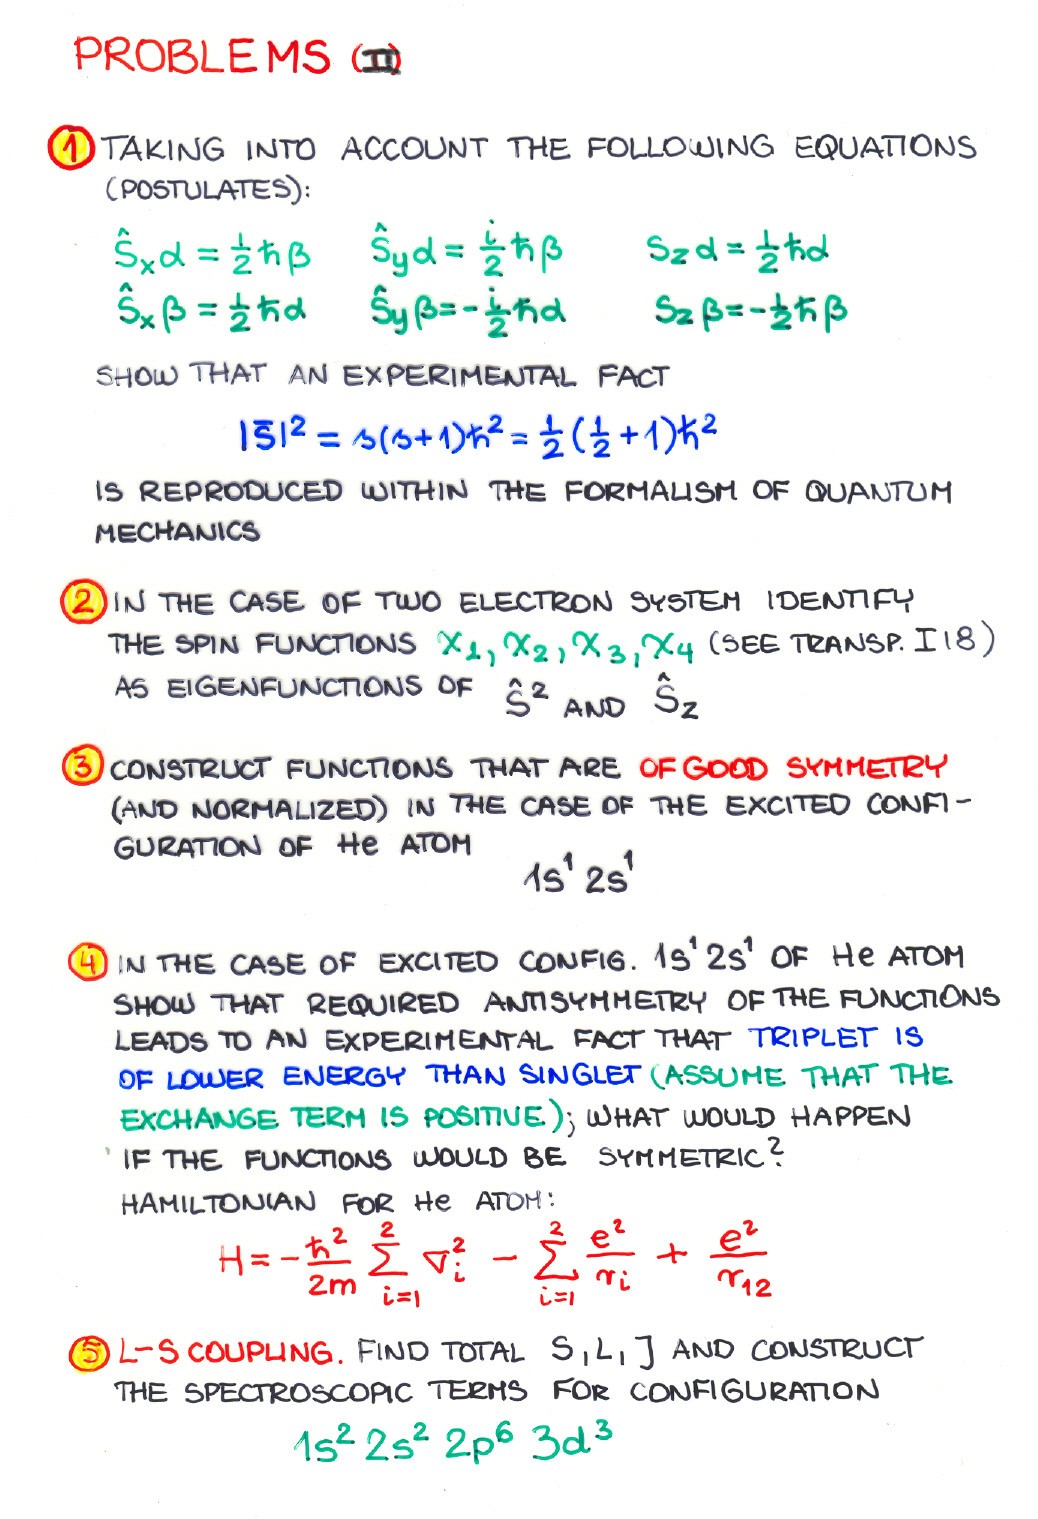 PROBLEMS (II)
1 TAKING INTO ACCOUNT THE FOLLOWING EQUATIONS
(POSTULATES):
Ŝₓα = ½ħβ Ŝyα = i/2 ħβ Szα = ½ħα
Ŝₓβ = ½ħα Ŝyβ = -i/2 ħα Szβ = -½ħβ
SHOW THAT AN EXPERIMENTAL FACT
|s̄|² = s(s+1)ħ² = ½(½+1)ħ²
IS REPRODUCED WITHIN THE FORMALISM OF QUANTUM
MECHANICS
2 IN THE CASE OF TWO ELECTRON SYSTEM IDENTIFY
THE SPIN FUNCTIONS X₁, X₂, X₃, X₄ (SEE TRANSP. I 18)
AS EIGENFUNCTIONS OF Ŝ² AND Ŝz
3 CONSTRUCT FUNCTIONS THAT ARE OF GOOD SYMMETRY
(AND NORMALIZED) IN THE CASE OF THE EXCITED CONFI-
GURATION OF He ATOM
1s¹ 2s¹
4 IN THE CASE OF EXCITED CONFIG. 1s¹ 2s¹ OF He ATOM
SHOW THAT REQUIRED ANTISYMMETRY OF THE FUNCTIONS
LEADS TO AN EXPERIMENTAL FACT THAT TRIPLET IS
OF LOWER ENERGY THAN SINGLET (ASSUME THAT THE
EXCHANGE TERM IS POSITIVE.); WHAT WOULD HAPPEN
IF THE FUNCTIONS WOULD BE SYMMETRIC?
HAMILTONIAN FOR He ATOM:
H = -ħ²/2m Σ(i=1 to 2) ∇i² - Σ(i=1 to 2) e²/ri + e²/r12
5 L-S COUPLING. FIND TOTAL S, L, J AND CONSTRUCT
THE SPECTROSCOPIC TERMS FOR CONFIGURATION
1s² 2s² 2p⁶ 3d³